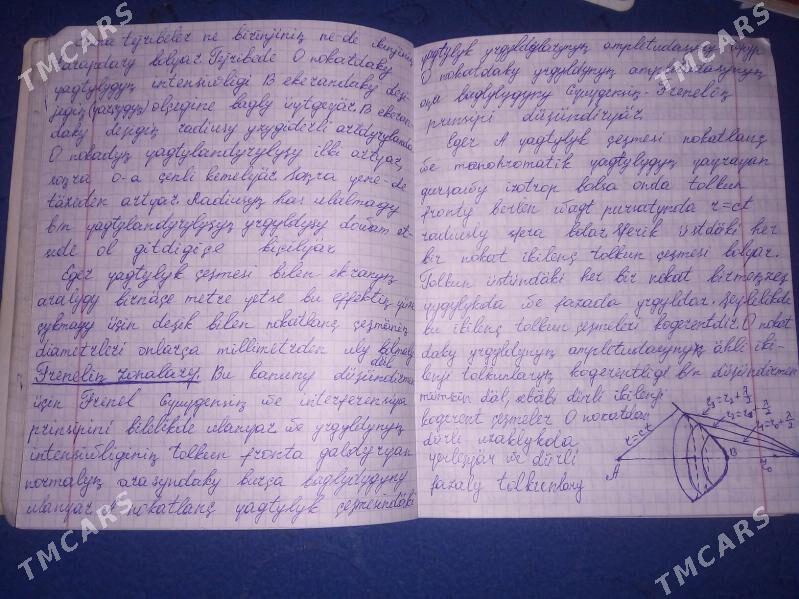 tejribeler ne birinjiniň ne-de ikinjiniň
bolýar. Tejribede O nokatdaky
ýagtylygyň intensiwligi B ekerandaky deşi-
jigiň ölçegine bagly üýtgeýär. B ekeran-
daky deşigiň radiusy yzygiderli artdyrylanda
O nokadyň ýagtylandyrylyşy ilki artýar,
soňra o-a çenli kemelýär. Soňra ýene-de
täzeden artýar. Radiusyň has ulalmagy
bn ýagtylandyrylyşyň yrgyldyşy dowam et-
sede ol gitdigiçe kiçilýär
Eger ýagtylyk çeşmesi bilen ekranyň
aralygy birnäçe metre ýetse bu effektiň ýüze
çykmagy üçin deşik bilen nokatlanç çeşmäniň
diametrleri onlarça millimetrden uly bolmaly
däl
Freneliň zonalary. Bu kanuny düşündirmek
üçin Frenel Gýuýgensiň we interferensiýa
prinsipini bilelikde ulanýar we yrgyldynyň
intensiwliginiň tolkun fronta galdyrylan
normalyň arasyndaky burça baglydygyny
ulanýar. A nokatlanç ýagtylyk çeşmesindäki
ýagtylyk yrgyldylarynyň amplitudasynyň
O nokatdaky yrgyldynyň amplitudasynyň
oňa baglylygyny Gýuýgensiň-Freneliň
prinsipi düşündirýär.
Eger A ýagtylyk çeşmesi nokatlanç
we monohromatik ýagtylygyň ýaýraýan
gurşawy izotrop bolsa onda tolkun
fronty berlen wagt pursatynda r=ct
radiusly sfera bolar. Sferik üstdäki her
bir nokat ikilenç tolkun çeşmesi bolýar.
Tolkun üstündäki her bir nokat birmeňzeş
ýygylykda we fazada yrgyldar. Şeýlelikde
bu ikilenç tolkun çeşmeleri kogerentdir. O nokat-
daky yrgyldynyň amplitudasynyň ähli iki-
lenji tolkunlaryň kogerentligi bn düşündirmek
mümkin däl, sebäbi dürli ikilenji
kogerent çeşmeler O nokatdan
dürli uzaklykda
ýerleşýär we dürli
fazaly tolkunlary
r=ct
A
B
r₀
TMCARS
TMCARS
TMCARS
TMCARS
TMCARS